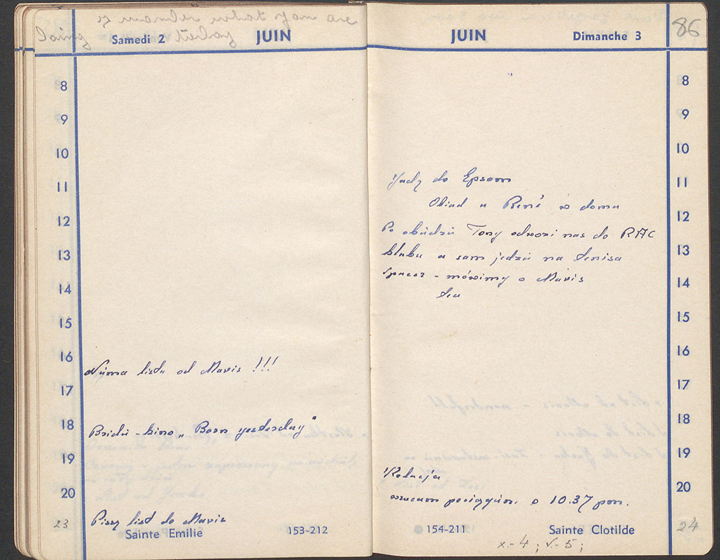 Samedi 2
JUIN
8
9
10
11
12
13
14
15
16
Niema listu od Mavis !!!
17
18
Bridż - kino „Born yesterday"
19
20
Piszę list do Mavis
23
Sainte Emilie
153-212
JUIN
Dimanche 3
86
8
9
10
Jadę do Epsom
11
Obiad u René w domu
12
Po obiedzie Tony odwozi nas do RAC
13
klubu a sam jedzie na tenisa
Spacer - mówimy o Mavis
14
15
16
17
18
19
Kolacja
20
wracam pociągiem o 10.37 pm.
154-211
Sainte Clotilde
24
x-4; v-5;